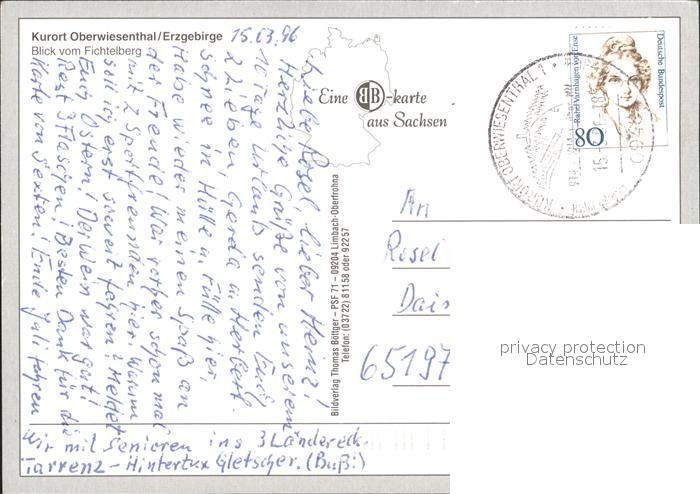 Kurort Oberwiesenthal/Erzgebirge 15.03.96
Blick vom Fichtelberg
Liebe Rosel, lieber Heinz!
Herzliche Grüße von unserem
10 Tage Urlaub senden Euch
2 Lieben, Gerda u. Herbert.
Schnee in Hülle u. Fülle hier,
Habe wieder meinen Spaß an
der Freude! War vorher schon mal
mit 2 Sportfreunden hier. Warum
soll ich erst soweit fahren? Meldet
Euch Ostern! Der Wein war gut!
Rest 3 Flaschen! Besten Dank für die
Karte von Sexten! Ende Juli fahren
wir mit Senioren ins 3 Ländereck.
Tarrenz - Hintertux Gletscher. (Buß!)
Eine BB-karte
aus Sachsen
Bildverlag Thomas Böttger – PSF 71 – 09204 Limbach-Oberfrohna
Telefon: (03722) 81158 oder 92257
Deutsche Bundespost
Rahel Varnhagen von Ense
80
KURORT OBERWIESENTHAL 1
914
15.
An
Rosel
Dais
65197
privacy protection
Datenschutz